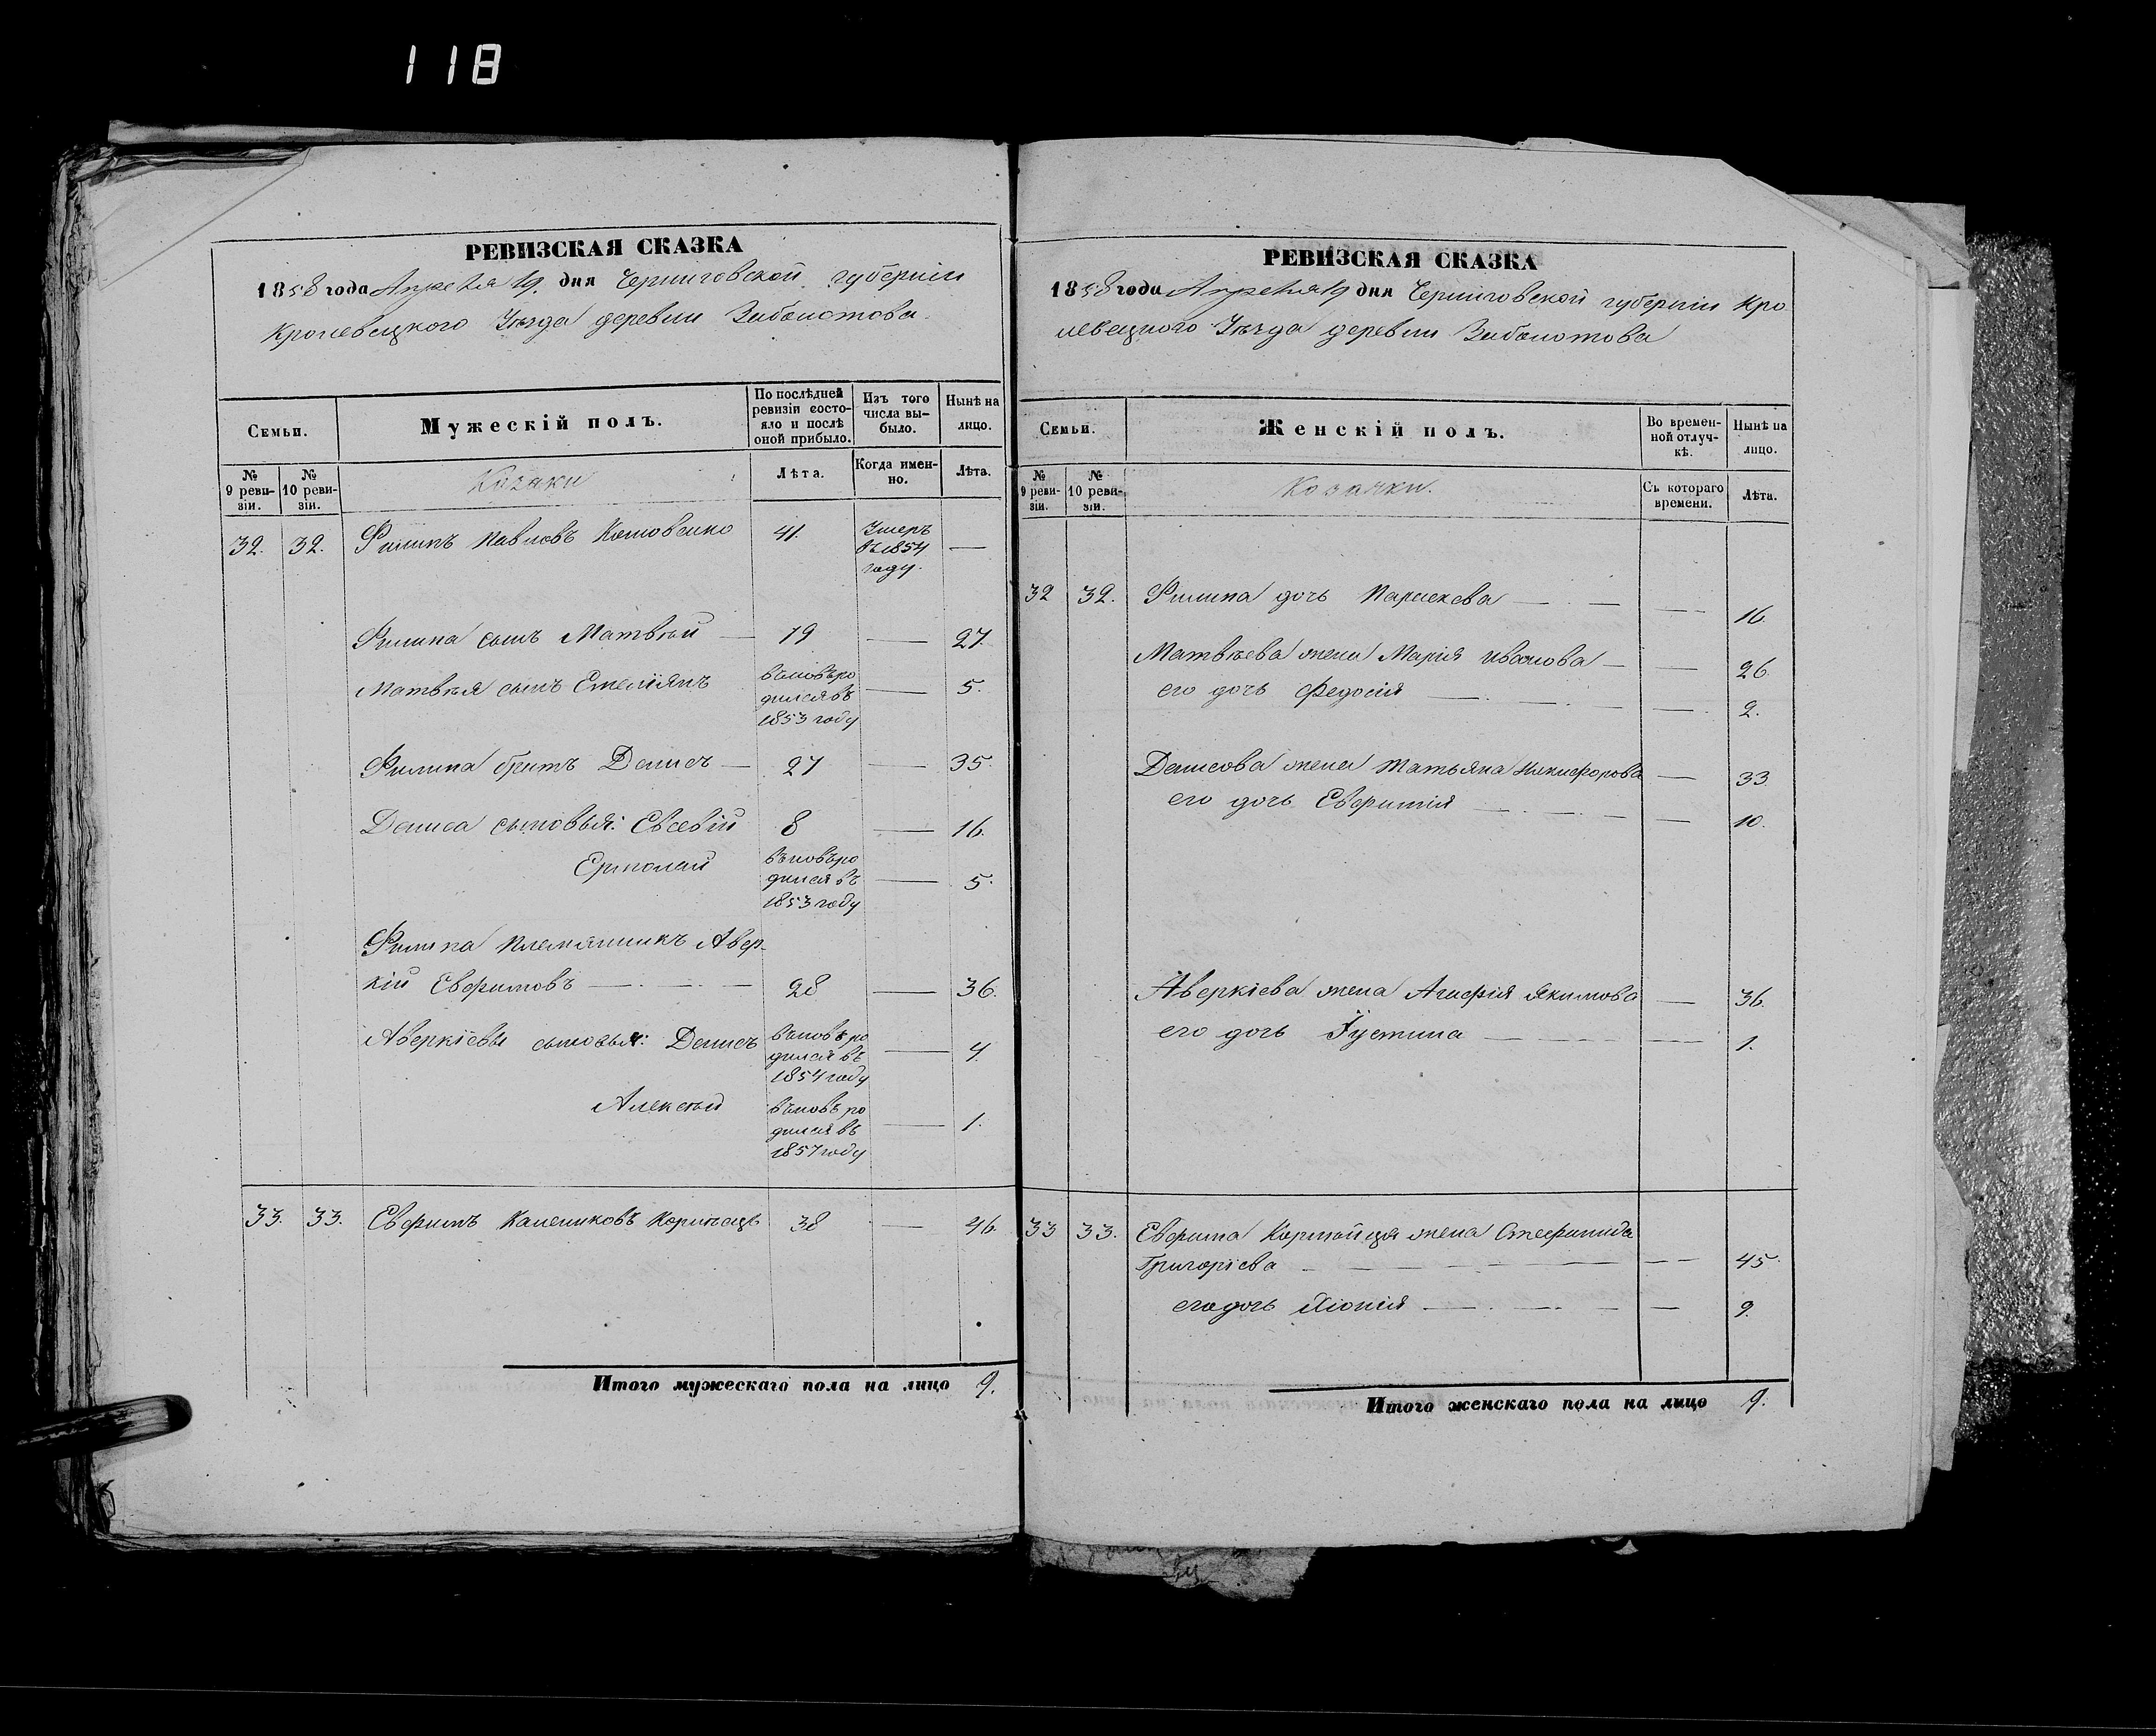 118
РЕВИЗСКАЯ СКАЗКА
1858 года Апреля 19. дня Черниговской губерніи
Кролевецкого Уѣзда деревни Заболотова
Семьи.
Мужескій полъ.
По послѣдней ревизіи состояло и послѣ оной прибыло.
Изъ того числа выбыло.
Нынѣ на лицо.
№ 9 ревизіи.
№ 10 ревизіи.
Козаки
Лѣта.
Когда именно.
Лѣта.
32. 32. Филипъ Павловъ Котовенко 41. Умеръ въ 1854 году. —
Филипа сынъ Матвѣй — 19 — 27.
Матвѣя сынъ Емеліянъ въновъ родился въ 1853 году — 5.
Филипа братъ Денисъ — 27 — 35.
Дениса сыновья: Евсевій 8 — 16.
Ермолай въновъ родился въ 1853 году — 5.
Филипа племянникъ Авер-
кій Евфимовъ — 28 — 36.
Аверкіевы сыновья: Денисъ въновъ родился въ 1854 году — 4.
Алексѣй въновъ родился въ 1857 году — 1.
33. 33. Евфимъ 38 — 46.
Итого мужескаго пола на лицо 9.
РЕВИЗСКАЯ СКАЗКА
1858 года Апреля 19 дня Черниговской губерніи Кро
левецкого Уѣзда деревни Заболотова
Семьи.
Женскій полъ.
Во временной отлучкѣ.
Нынѣ на лицо.
№ 9 ревизіи.
№ 10 ревизіи.
Козачки.
Съ котораго времени.
Лѣта.
32 32. Филипа дочь Параскева — — 16.
Матвѣева жена Марія Иванова — — 26.
его дочь Федосія — — 2.
Денисова жена Татьяна Никифорова — 33.
его дочь Евфимія — — 10.
Аверкіева жена Агафія Якимова — 36.
его дочь Іустина — — 1.
33 33. Евфима жена Стефанида
Григоріева — — 45.
его дочь Хіонія — — 9.
Итого женскаго пола на лицо 9.